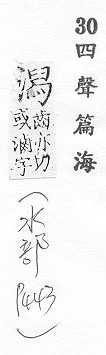 30 四聲篇海
潟 齒亦切
或滷字
(水部 P443)